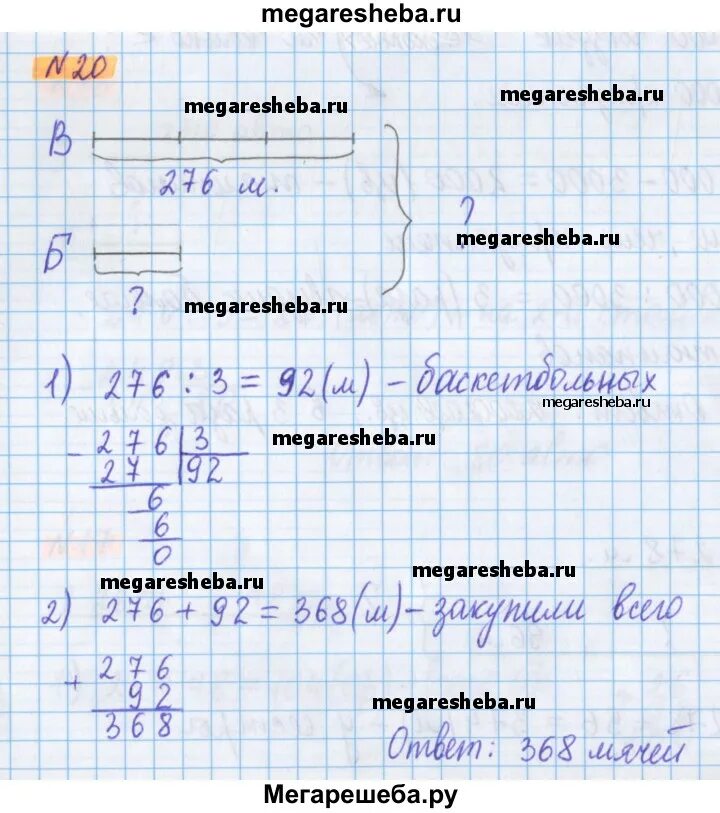 megaresheba.ru
N 20
megaresheba.ru
megaresheba.ru
В
276 м.
?
megaresheba.ru
Б
?
megaresheba.ru
1) 276 : 3 = 92 (м) - баскетбольных
megaresheba.ru
- 276 | 3
27 | 92
megaresheba.ru
- 6
6
0
megaresheba.ru
megaresheba.ru
2) 276 + 92 = 368 (м) - закупили всего
+ 276
92
368
megaresheba.ru
Ответ: 368 мячей
Мегарешеба.ру